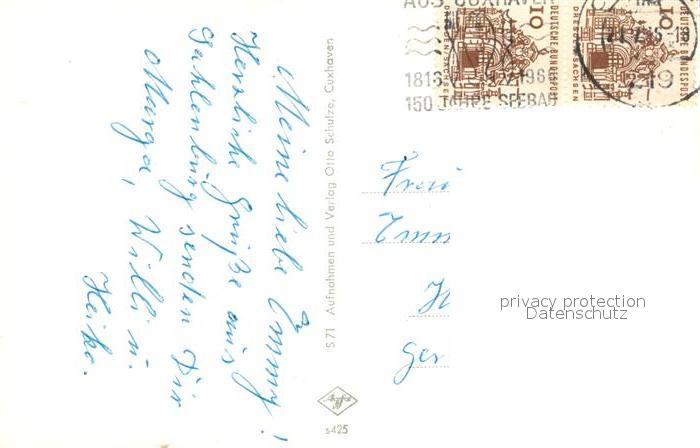 Meine liebe Emmy!
Herzliche Grüße aus
Sahlenburg senden Dir
Marga, Willi u.
Heiko.
S 71 Aufnahmen und Verlag Otto Schulze, Cuxhaven
Agfa
s425
AUS CUXHAVEN
1816 1966
150 JAHRE SEEBAD
10
DEUTSCHE BUNDESPOST
DRESDEN/SACHSEN
10
DEUTSCHE BUNDESPOST
DRESDEN/SACHSEN
219
Frau
Emm
H
Ger
privacy protection
Datenschutz